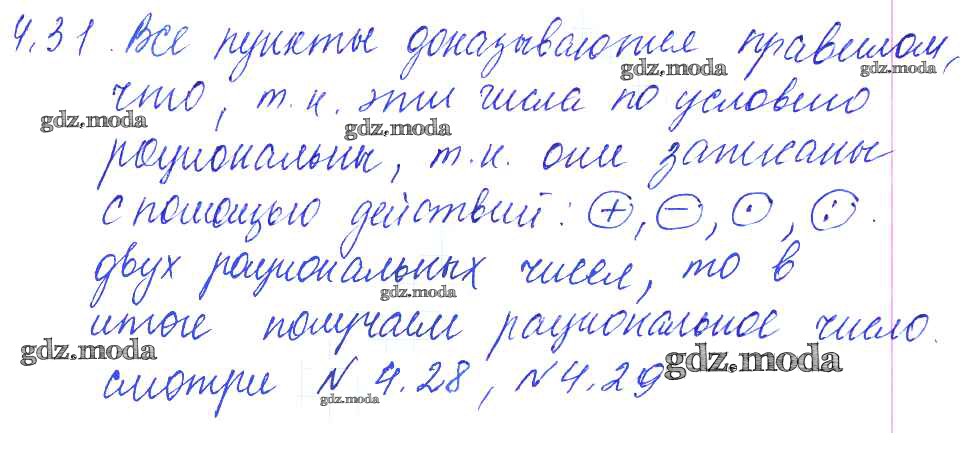 4.31. Все пункты доказываются правилом,
что, т.к. эти числа по условию
рациональны, т.к. они записаны
с помощью действий: +, -, ·, : .
двух рациональных чисел, то в
итоге получаем рациональное число.
смотри N 4.28, N 4.29
gdz.moda
gdz.moda
gdz.moda
gdz.moda
gdz.moda
gdz.moda
gdz.moda
gdz.moda